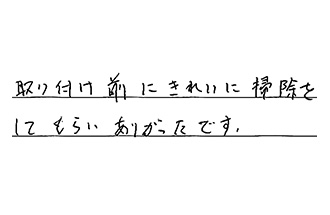 取り付け前にきれいに掃除を
してもらいありがったです.